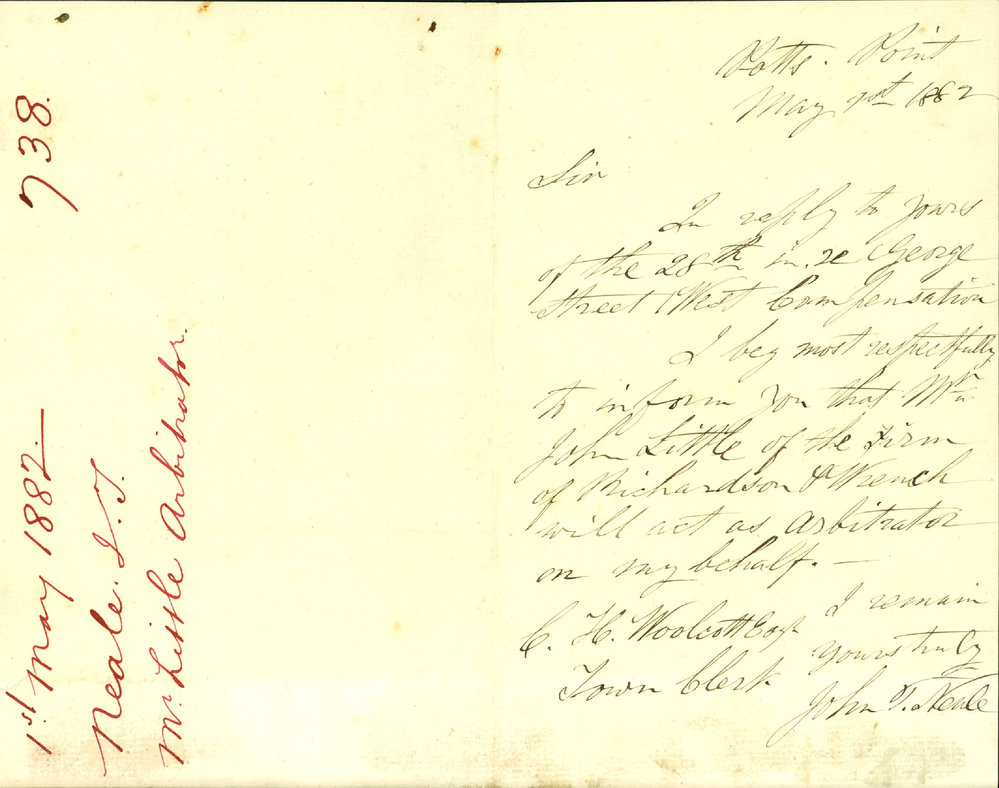 738.
1st May 1882.—
Neale. J. T.
Mr Little Arbitrator.
Potts. Point
May 1st 1882
Sir
In reply to yours
of the 28th in. re George
Street West Compensation
I beg most respectfully
to inform you that Mr
John Little of the Firm
of Richardson & Wrench
will act as arbitrator
on my behalf. —
I remain
yours truly
John T. Neale
C. H. Woolcott Esqr
Town Clerk